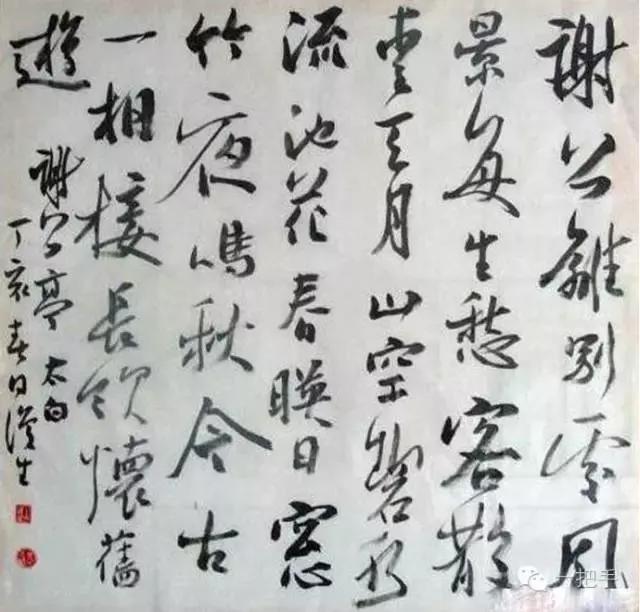 謝公離別處風
景每生愁客散
青天月山空碧水
流池花春暎日窓
竹夜鳴秋今古
一相接長歌懷舊
遊
謝公亭 太白
丁亥春日漢生
一把手